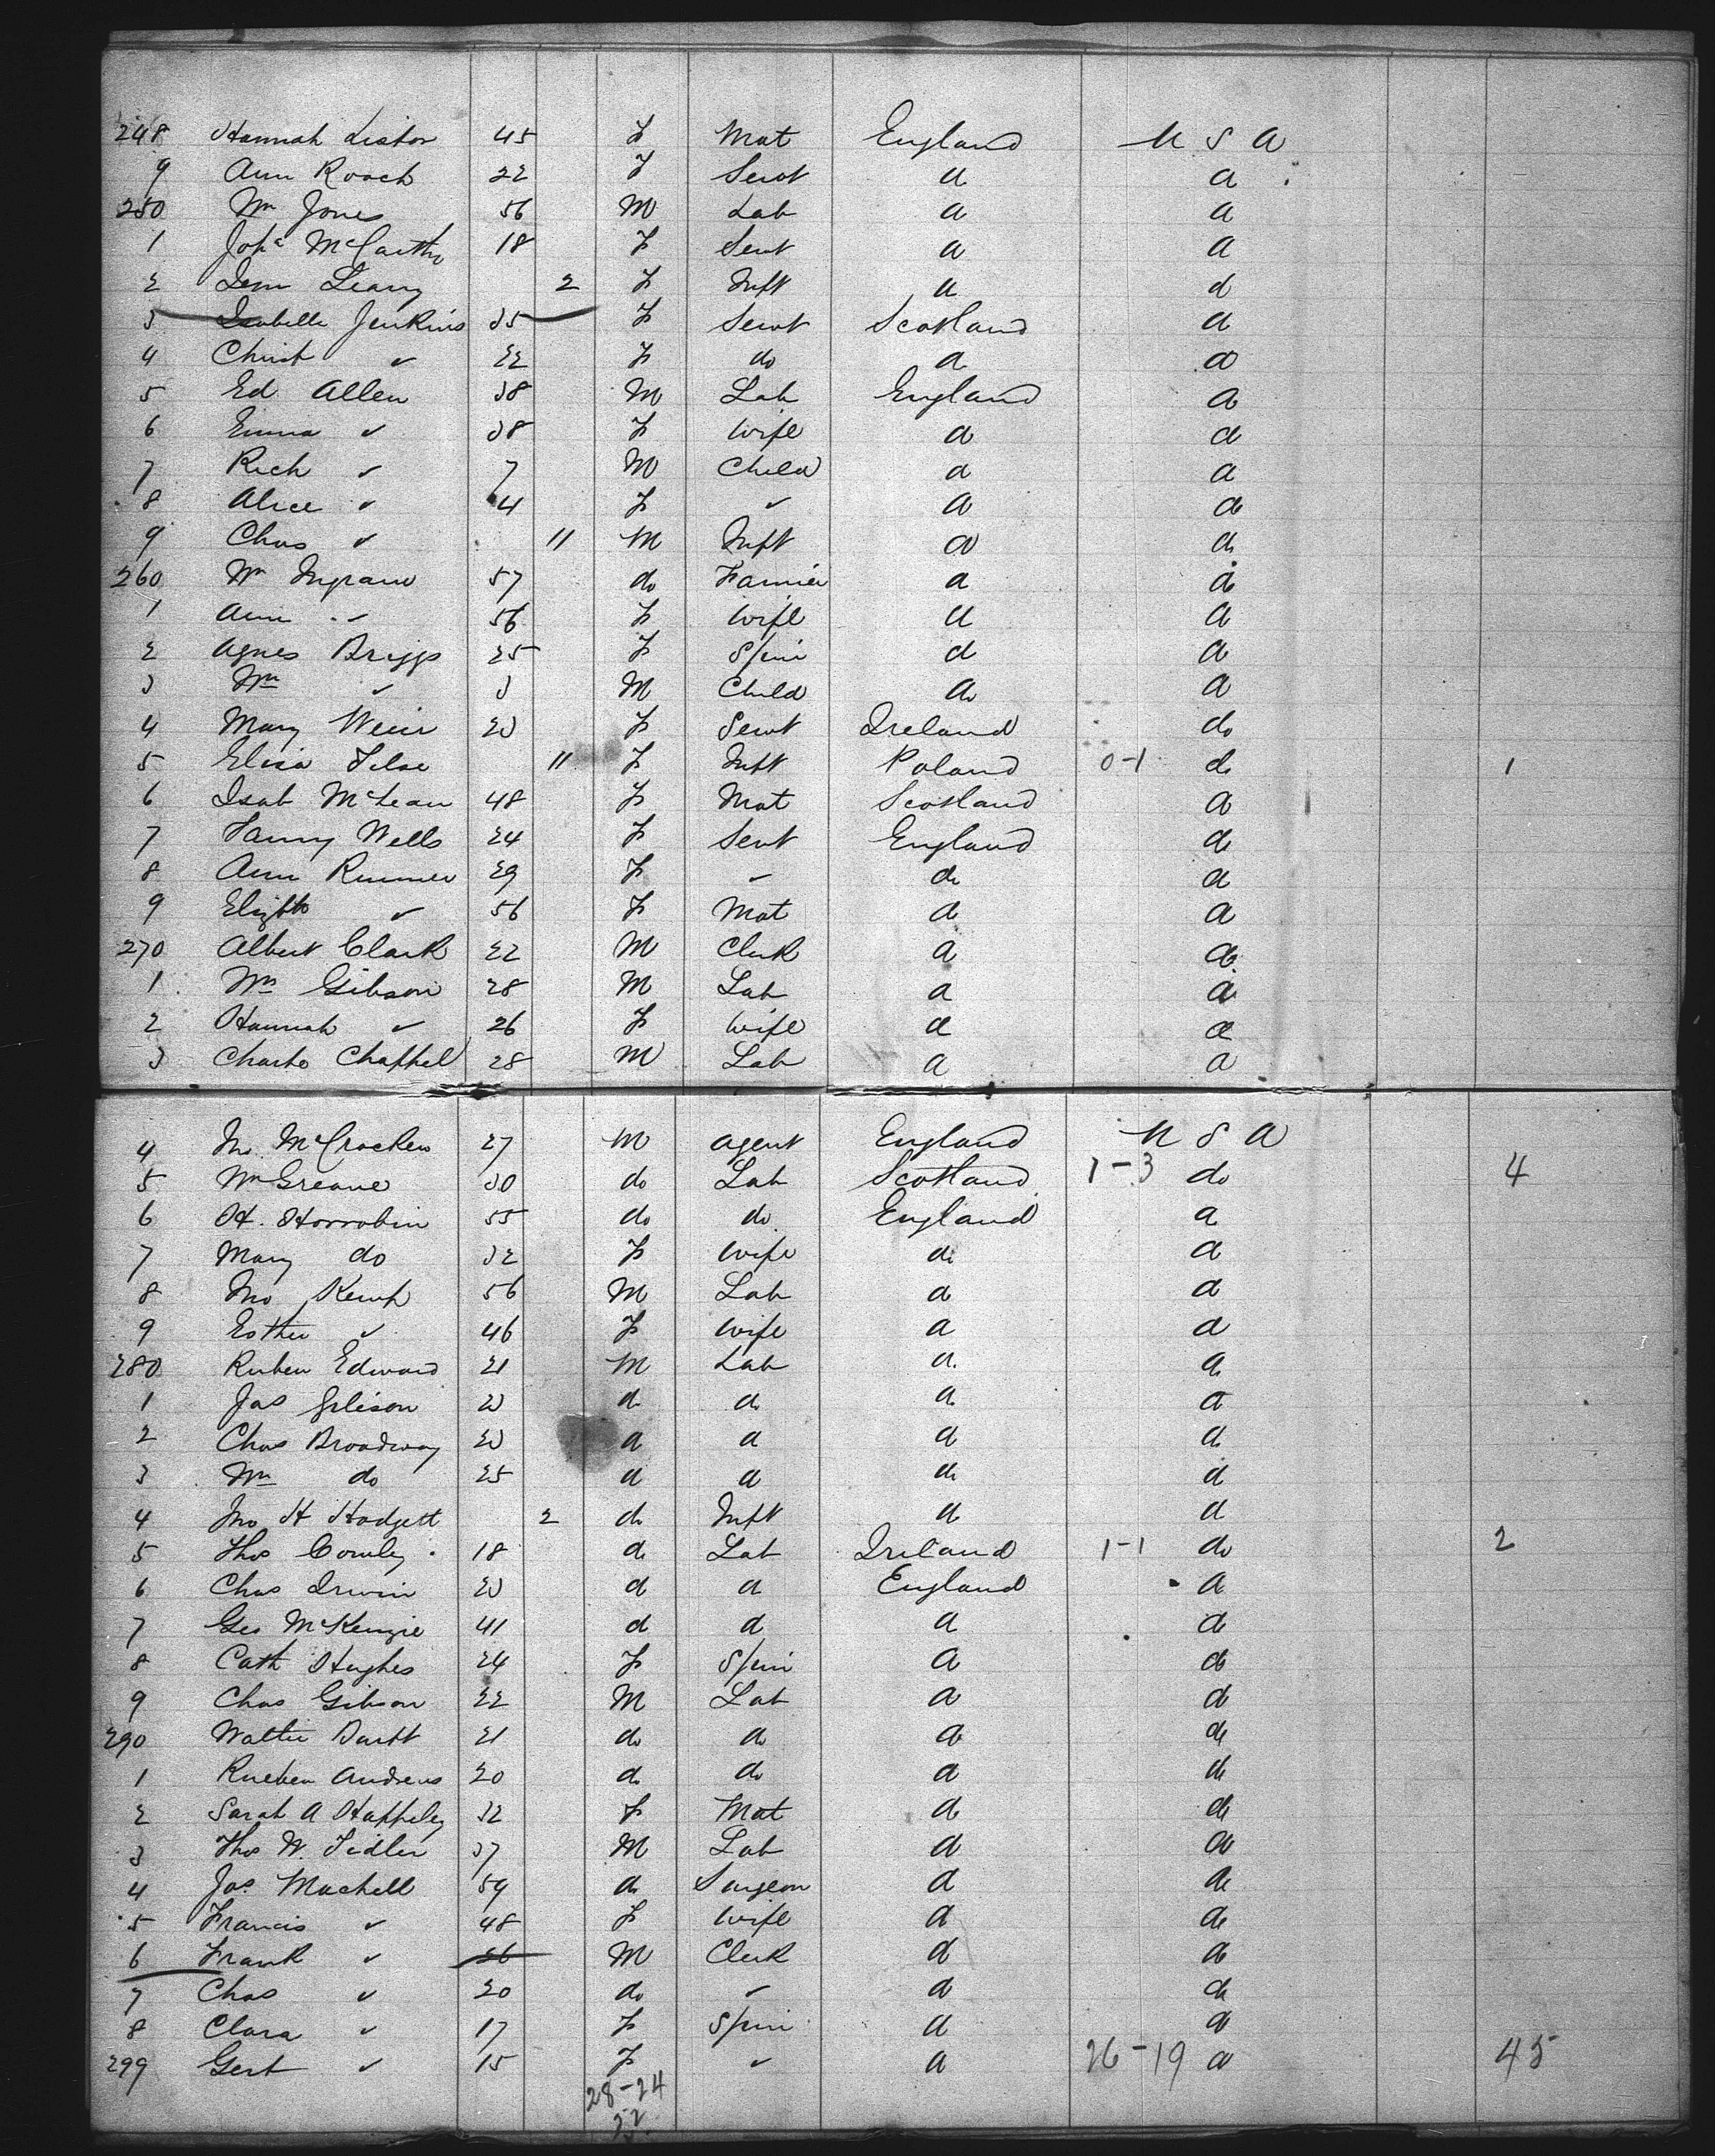 248 Hannah Lister 45 F Mat England U S A
9 Ann Roach 22 F Servt d d
250 Wm Jones 56 M Lab d d
1 Joha McCarthy 18 F Servt d d
2 Leary 2 F Inft d d
3 Isabella Jenkins 35 F Servt Scotland d
4 Christ " 22 F do d d
5 Ed Allen 38 M Lab England d
6 Emma " 38 F Wife d d
7 Rich " 7 M Child d d
8 Alice " 4 F " d d
9 Chas " 11 M Inft d d
260 Wm Ingram 57 do Farmer d d
1 Ann " 56 F Wife d d
2 Agnes Briggs 25 F Spin d d
3 Wm " 3 M Child d d
4 Mary Weir 20 F Servt Ireland do
5 Eliza 11 F Inft Poland 0-1 d 1
6 Isab McLean 48 F Mat Scotland d
7 Fanny Wells 24 F Servt England d
8 Ann Rimmer 29 F " d d
9 Elizbth " 56 F Mat d d
270 Albert Clark 22 M Clerk d d
1 Wm Gibson 28 M Lab d d
2 Hannah " 26 F Wife d d
3 Charles Chappel 28 M Lab d d
4 Jno McCracken 27 M Agent England U S A
5 Wm Greave 30 do Lab Scotland 1-3 do 4
6 H. Horrobin 55 do do England d
7 Mary do 32 F Wife d d
8 Jno 56 M Lab d d
9 Esther " 46 F Wife d d
280 Ruben Edward 21 M Lab d d
1 Jas 20 d d d d
2 Chas Broadway 20 d d d d
3 Wm do 25 d d d d
4 Jno H Hodgett 2 d Inft d d
5 Thos Cowley 18 d Lab Ireland 1-1 do 2
6 Chas Irwin 20 d d England d
7 Geo McKenzie 41 d d d d
8 Cath Hughes 24 F Spin d d
9 Chas Gibson 22 M Lab d d
290 Walter 21 do d d d
1 Rueben Andrews 20 d do d d
2 Sarah A Happeley 32 F Mat d d
3 Thos W. Fidler 37 M Lab d d
4 Jas. Machell 59 d Surgeon d d
5 Francis " 48 F Wife d d
6 Frank " 26 M Clerk d d
7 Chas " 20 do " d d
8 Clara " 17 F Spin d d
299 Gert " 15 F " d 26-19 d 45
28-24
52